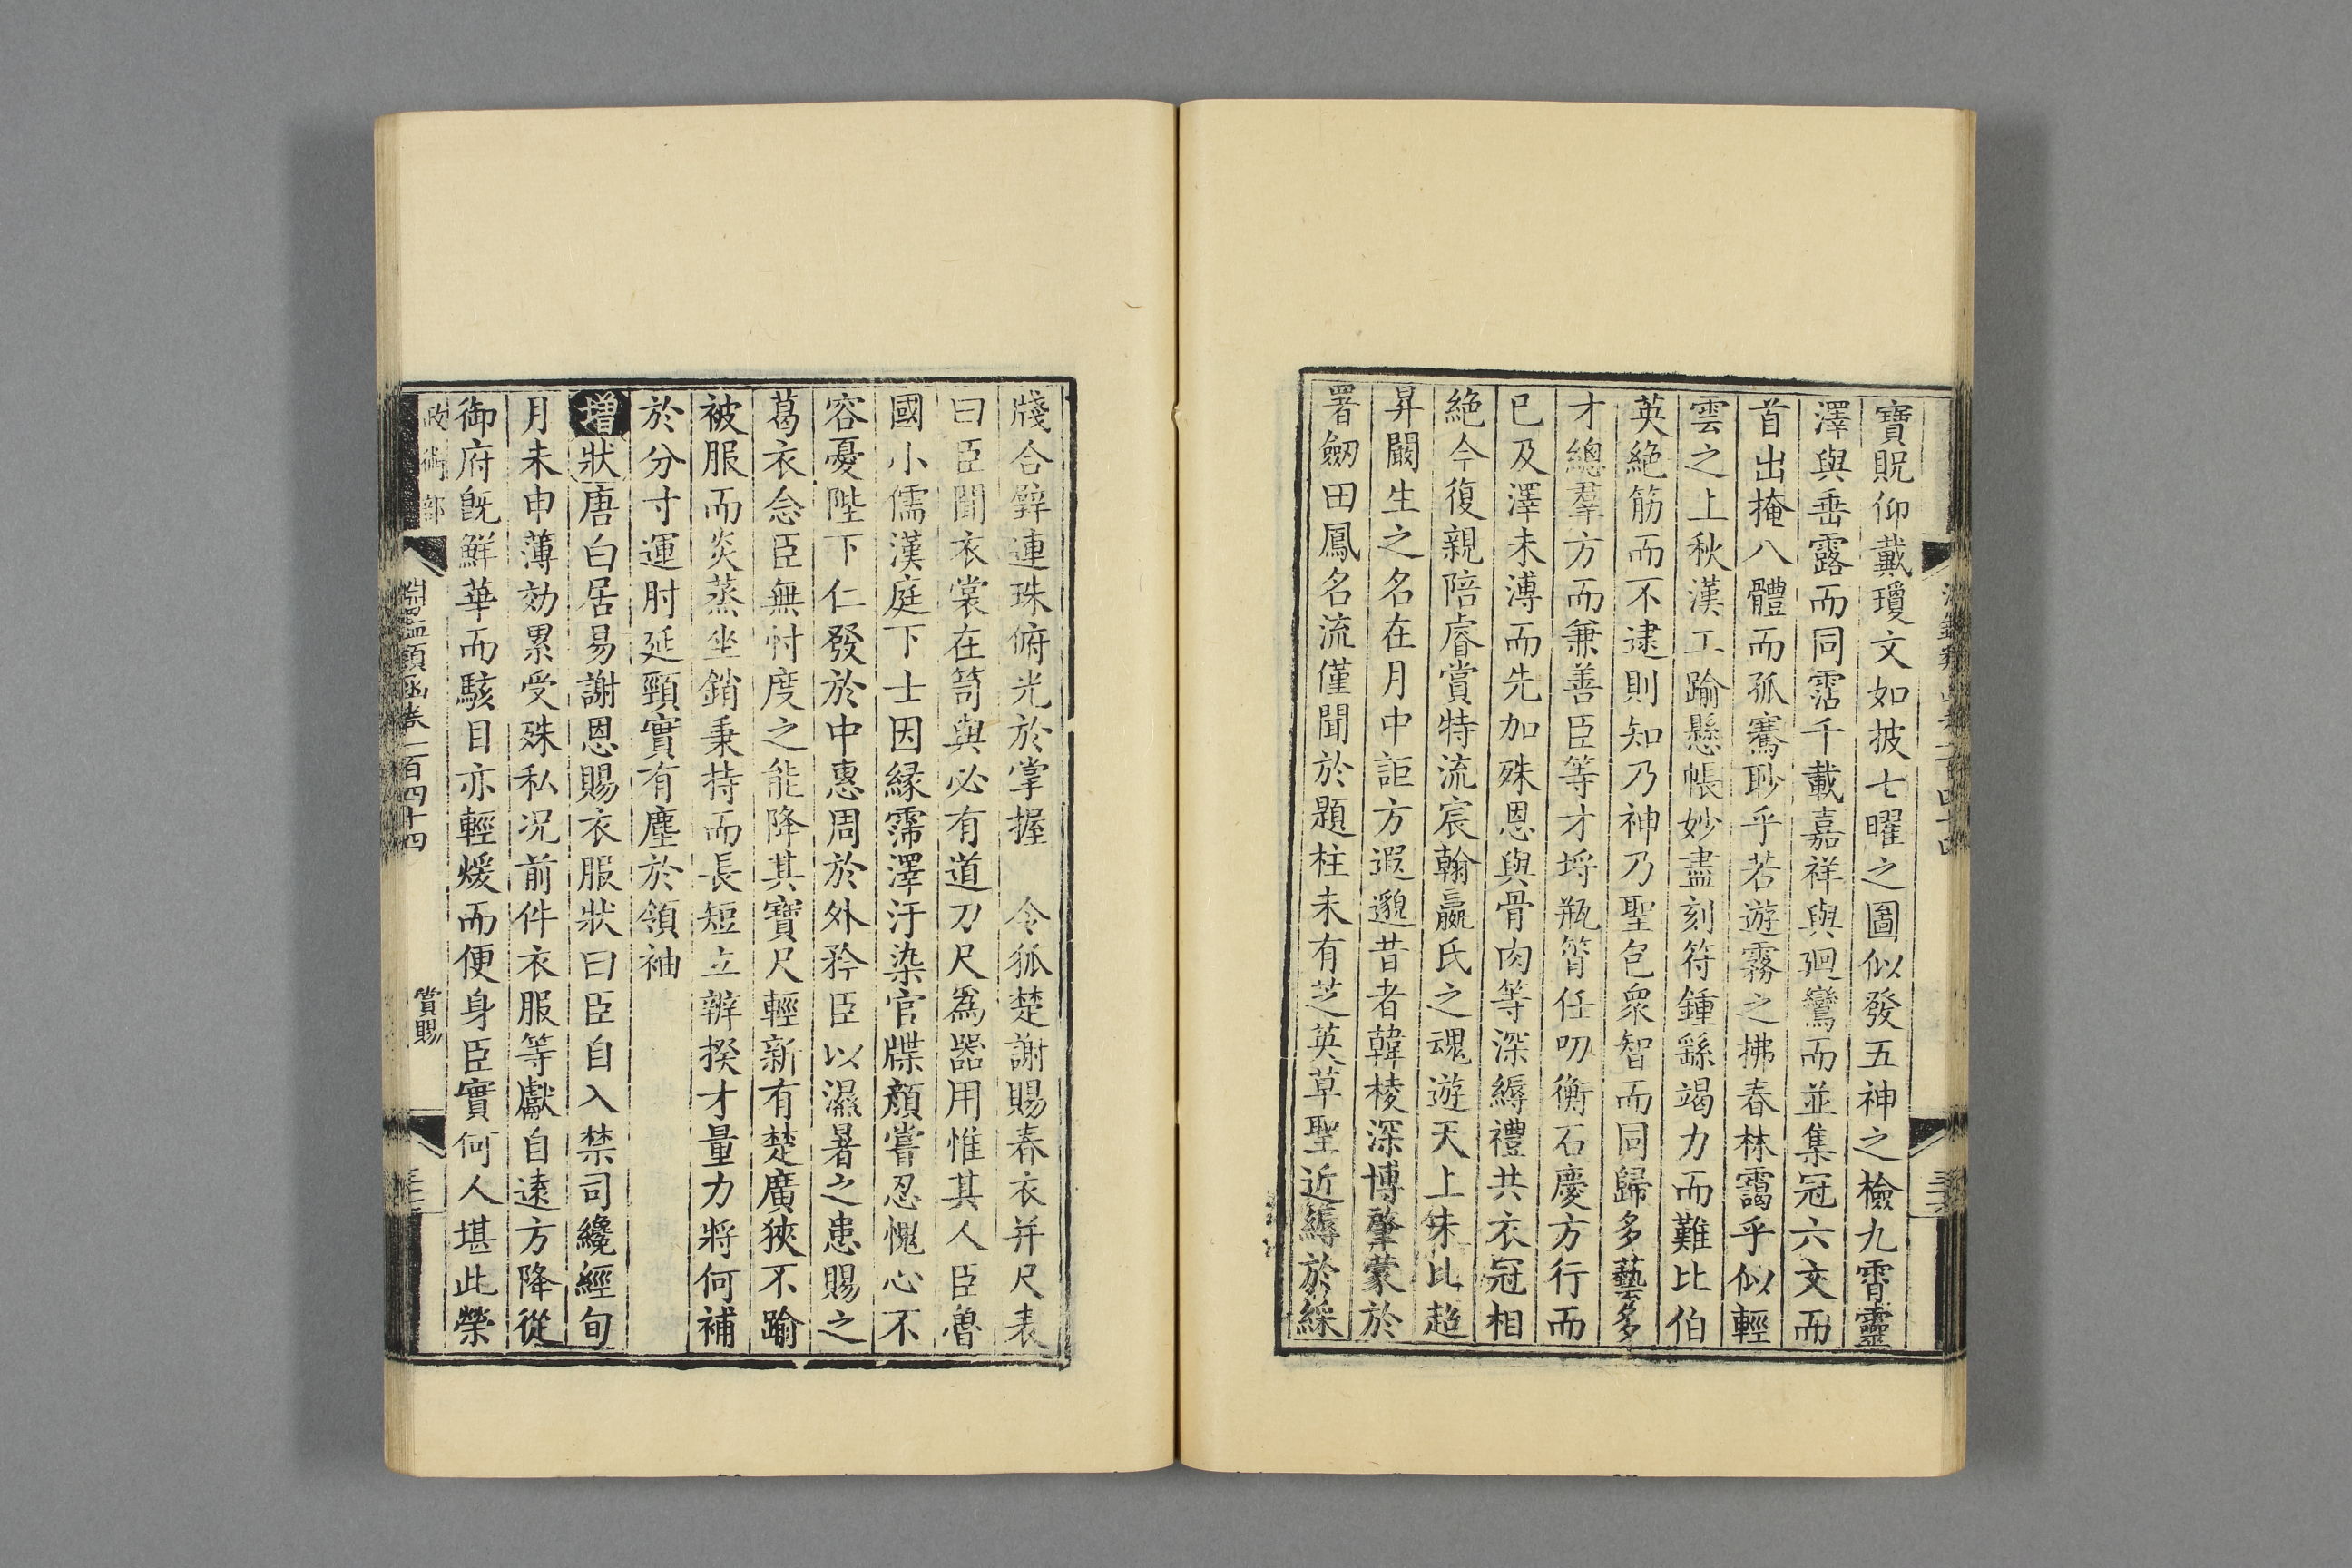 寶貺仰戴瓊文如披七曜之圖似發五神之檢九霄靈
澤與垂露而同霑千載嘉祥與廻鸞而並集冠六文而
首出掩八體而孤騫聆乎若遊霧之拂春林靄乎似輕
雲之上秋漢工踰懸帳妙盡刻符鍾繇竭力而難比伯
英絶筋而不逮則知乃神乃聖包衆智而同歸多藝多
才總羣方而兼善臣等才埓瓶筲任叨衡石慶方行而
已及澤未溥而先加殊恩與骨肉等深縟禮共衣冠相
絶今復親陪睿賞特流宸翰嬴氏之魂遊天上未比超
昇闞生之名在月中詎方遐邈昔者韓棱深博肇蒙於
署劒田鳳名流僅聞於題柱未有芝英草聖近縟於綵
牋合璧連珠俯光於掌握　令狐楚謝賜春衣并尺表
曰臣聞衣裳在笥與必有道刀尺爲器用惟其人臣魯
國小儒漢庭下士因緣霈澤汙染官牒顔嘗忍愧心不
容憂陛下仁發於中惠周於外矜臣以濕暑之患賜之
葛衣念臣無忖度之能降其寶尺輕新有楚廣狹不踰
被服而炎蒸坐銷秉持而長短立辨揆才量力將何補
於分寸運肘延頸實有塵於領袖
增狀唐白居易謝恩賜衣服狀曰臣自入禁司纔經旬
月未申薄効累受殊私况前件衣服等獻自遠方降從
御府旣鮮華而駭目亦輕煖而便身臣實何人堪此榮
政術部　淵鑑類函卷一百四十四　賞賜